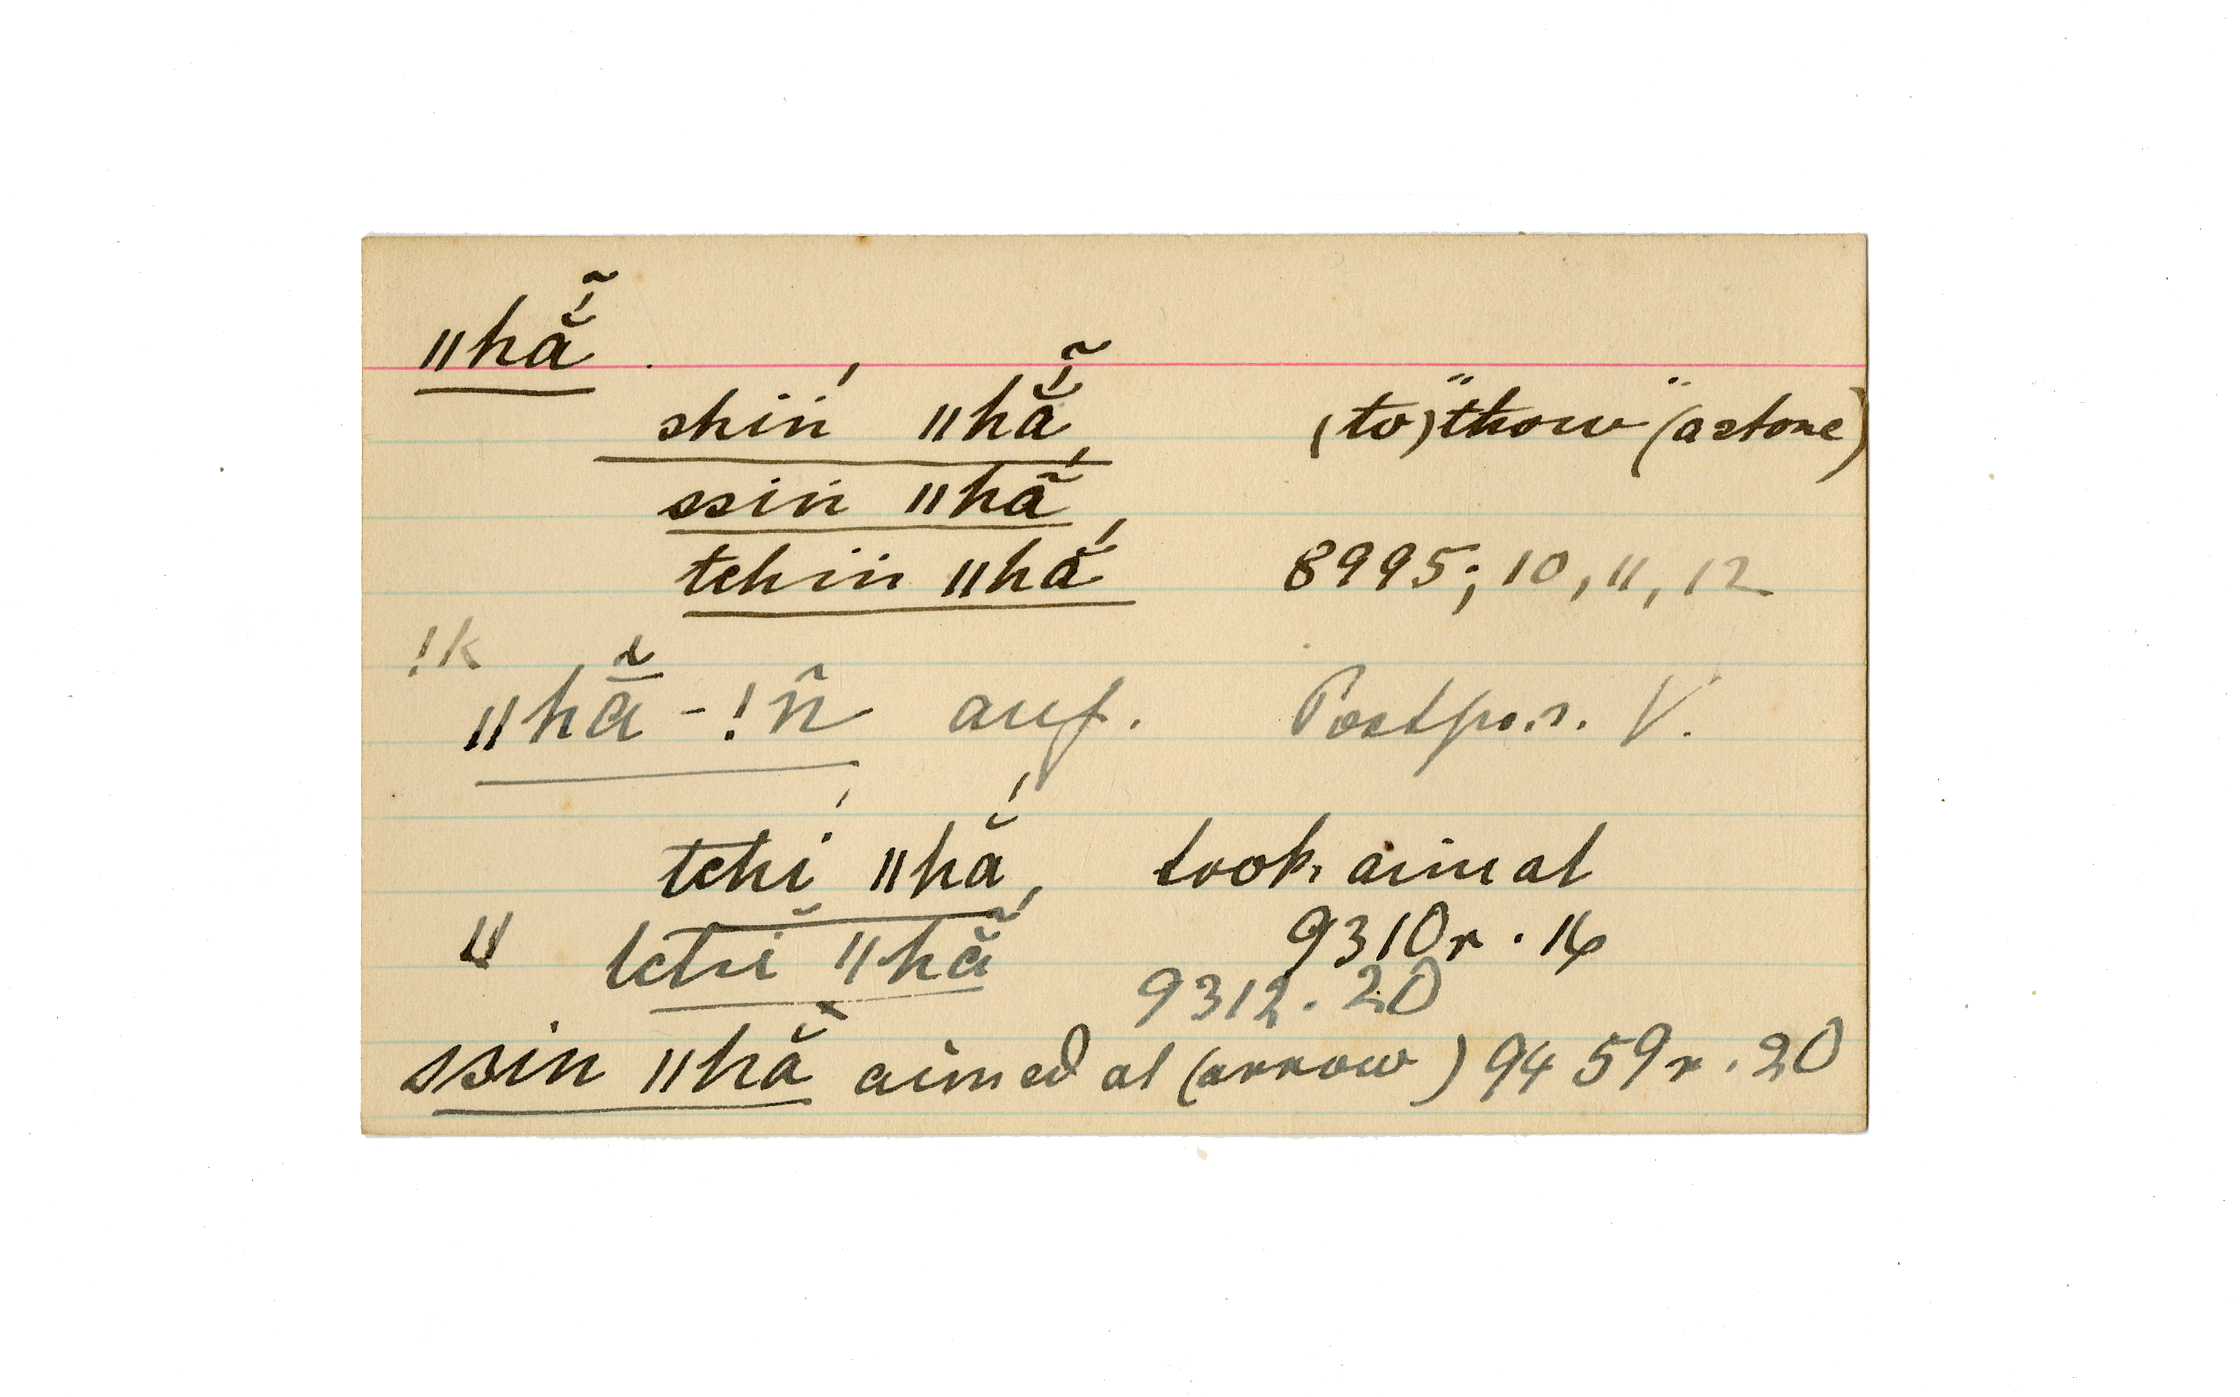 ǁhắ̃
shiṅ́ ǁhắ̃ (to) "thow" (a stone)
ssiṅ ǁhã́
tchiṅ ǁhắ 8995; 10, 11, 12
!k
ǁhā̆ - !n̂ auf. Postpos. V.
tchí ǁhắ, took aim at
ǁ tchĭ ǁhã́ 9310r. 16
9312. 20
ssin ǁhằ aimed at (arrow) 9459r. 20